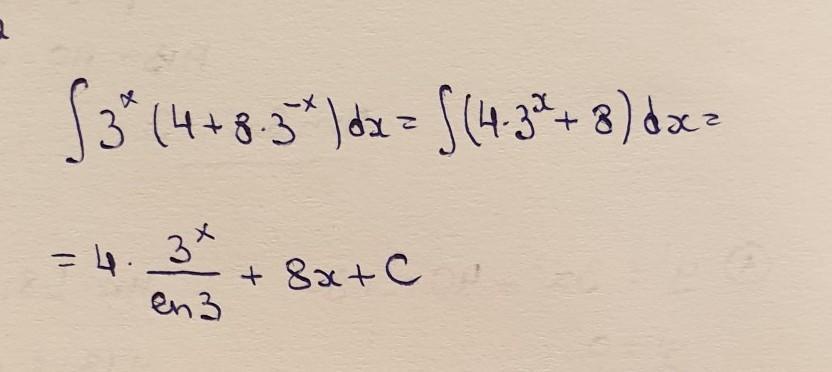 ∫3^x (4+8·3^-x)dx = ∫(4·3^x + 8)dx =
= 4 · 3^x / ln3 + 8x + C